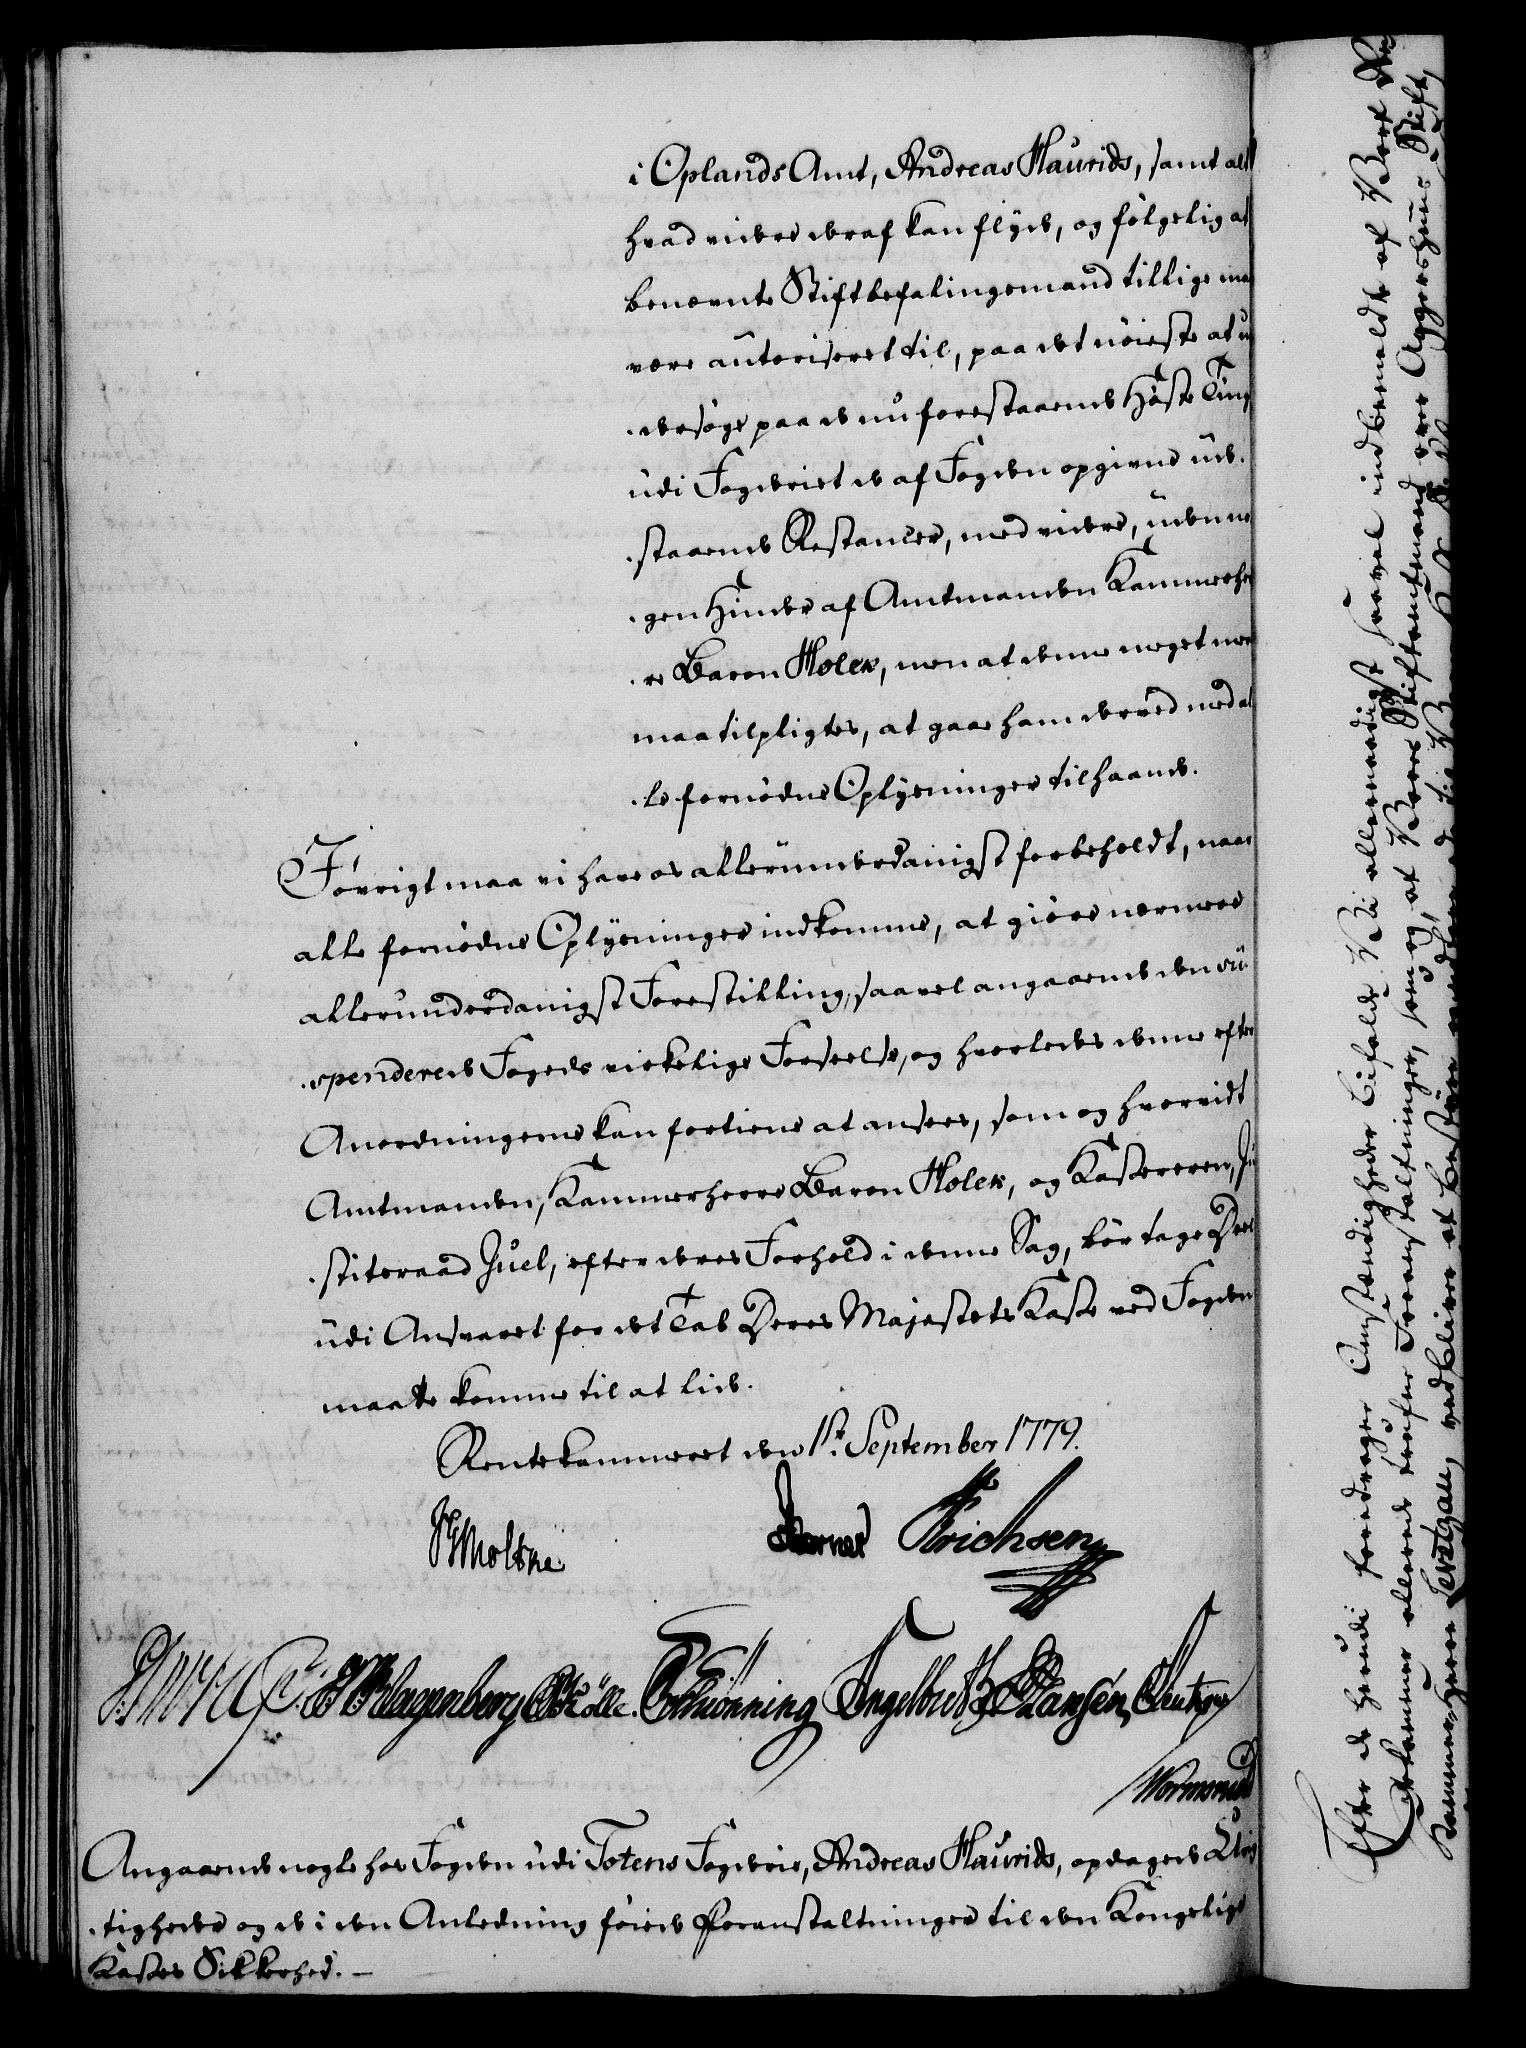 i Oplands Amt, Andreas Haurids, samt alt
hvad videre deraf kan flyde, og følgelig at
benævnte Stiftbefalingsmand tillige maa
være autoriseret til, paa det nøieste at un
dersøge paa de nu forestaaende Høste Ting
udi Fogderiet de af Fogden opgivne ude-
staaende Restancer, med videre, uden no
gen Hinder af Amtmanden Kammerher
re Baron Holck, men at denne meget meer
maa tilpligtes, at gaae ham derved med al
le fornødne Oplysninger tilhaande.
Iøvrigt maa vi have os allerunderdanigst forbeholdt, naar
alle fornødne Oplysninger indkomme, at giøre nærmere
allerunderdanigst Forestilling, saavel angaaende den su
spenderede Fogeds virkelige Forseelse, og hvorledes denne efter
Anordningerne kan fortiene at ansees, som og hvorvidt
Amtmanden, Kammerherre Baron Holck, og Kassereren, Ju
stitsraad Juel, efter deres Forhold i denne Sag, bør tage Deel
udi Ansvaret for det Tab Deres Majestets Kasse ved Fogden
maatte komme til at lide.
Rentekammeret den 1ste September 1779.
JGMoltke Erichsen
Klagenberg Thrönning Engelbret Hansen
Wormskiold
Angaaende nogle hos Fogden udi Totens Fogderie, Andreas Haurids, opdagede Urig
tigheder og de i den Anledning føiede Foranstaltninger til den Kongelige
Kasses Sikkerhed.
Efter de herudi foredragne Omstændigheder bifalde Vi allernaadigst saavel indbemeldte af Vort Rente
Kammer allerede trufne Foranstaltninger, som og, at Vores Stiftamtmand over Aggershuus Stift,
Kammerherre Levetzau, vedbliver at